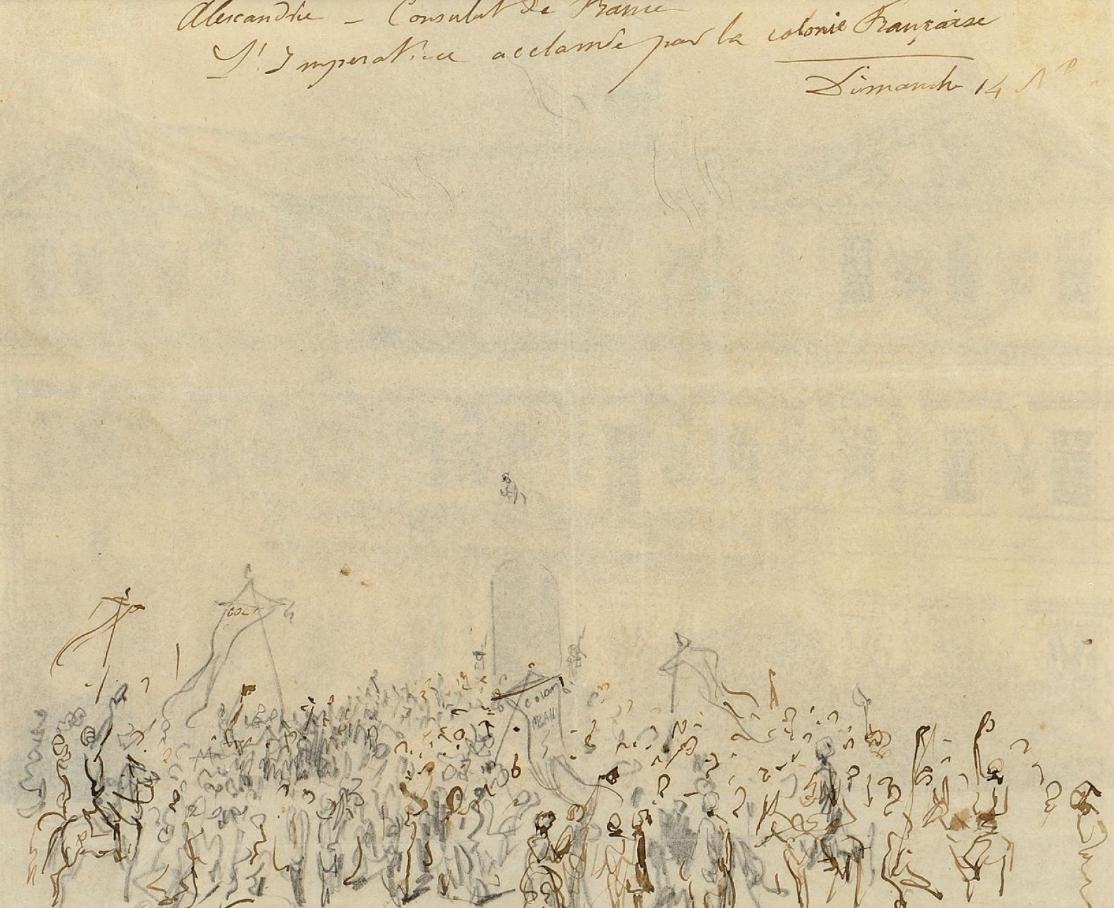 Alexandrie - Consulat de France
L'Imperatrice acclamée par la colonie Française
Dimanche 14 N^bre
COL
COLON